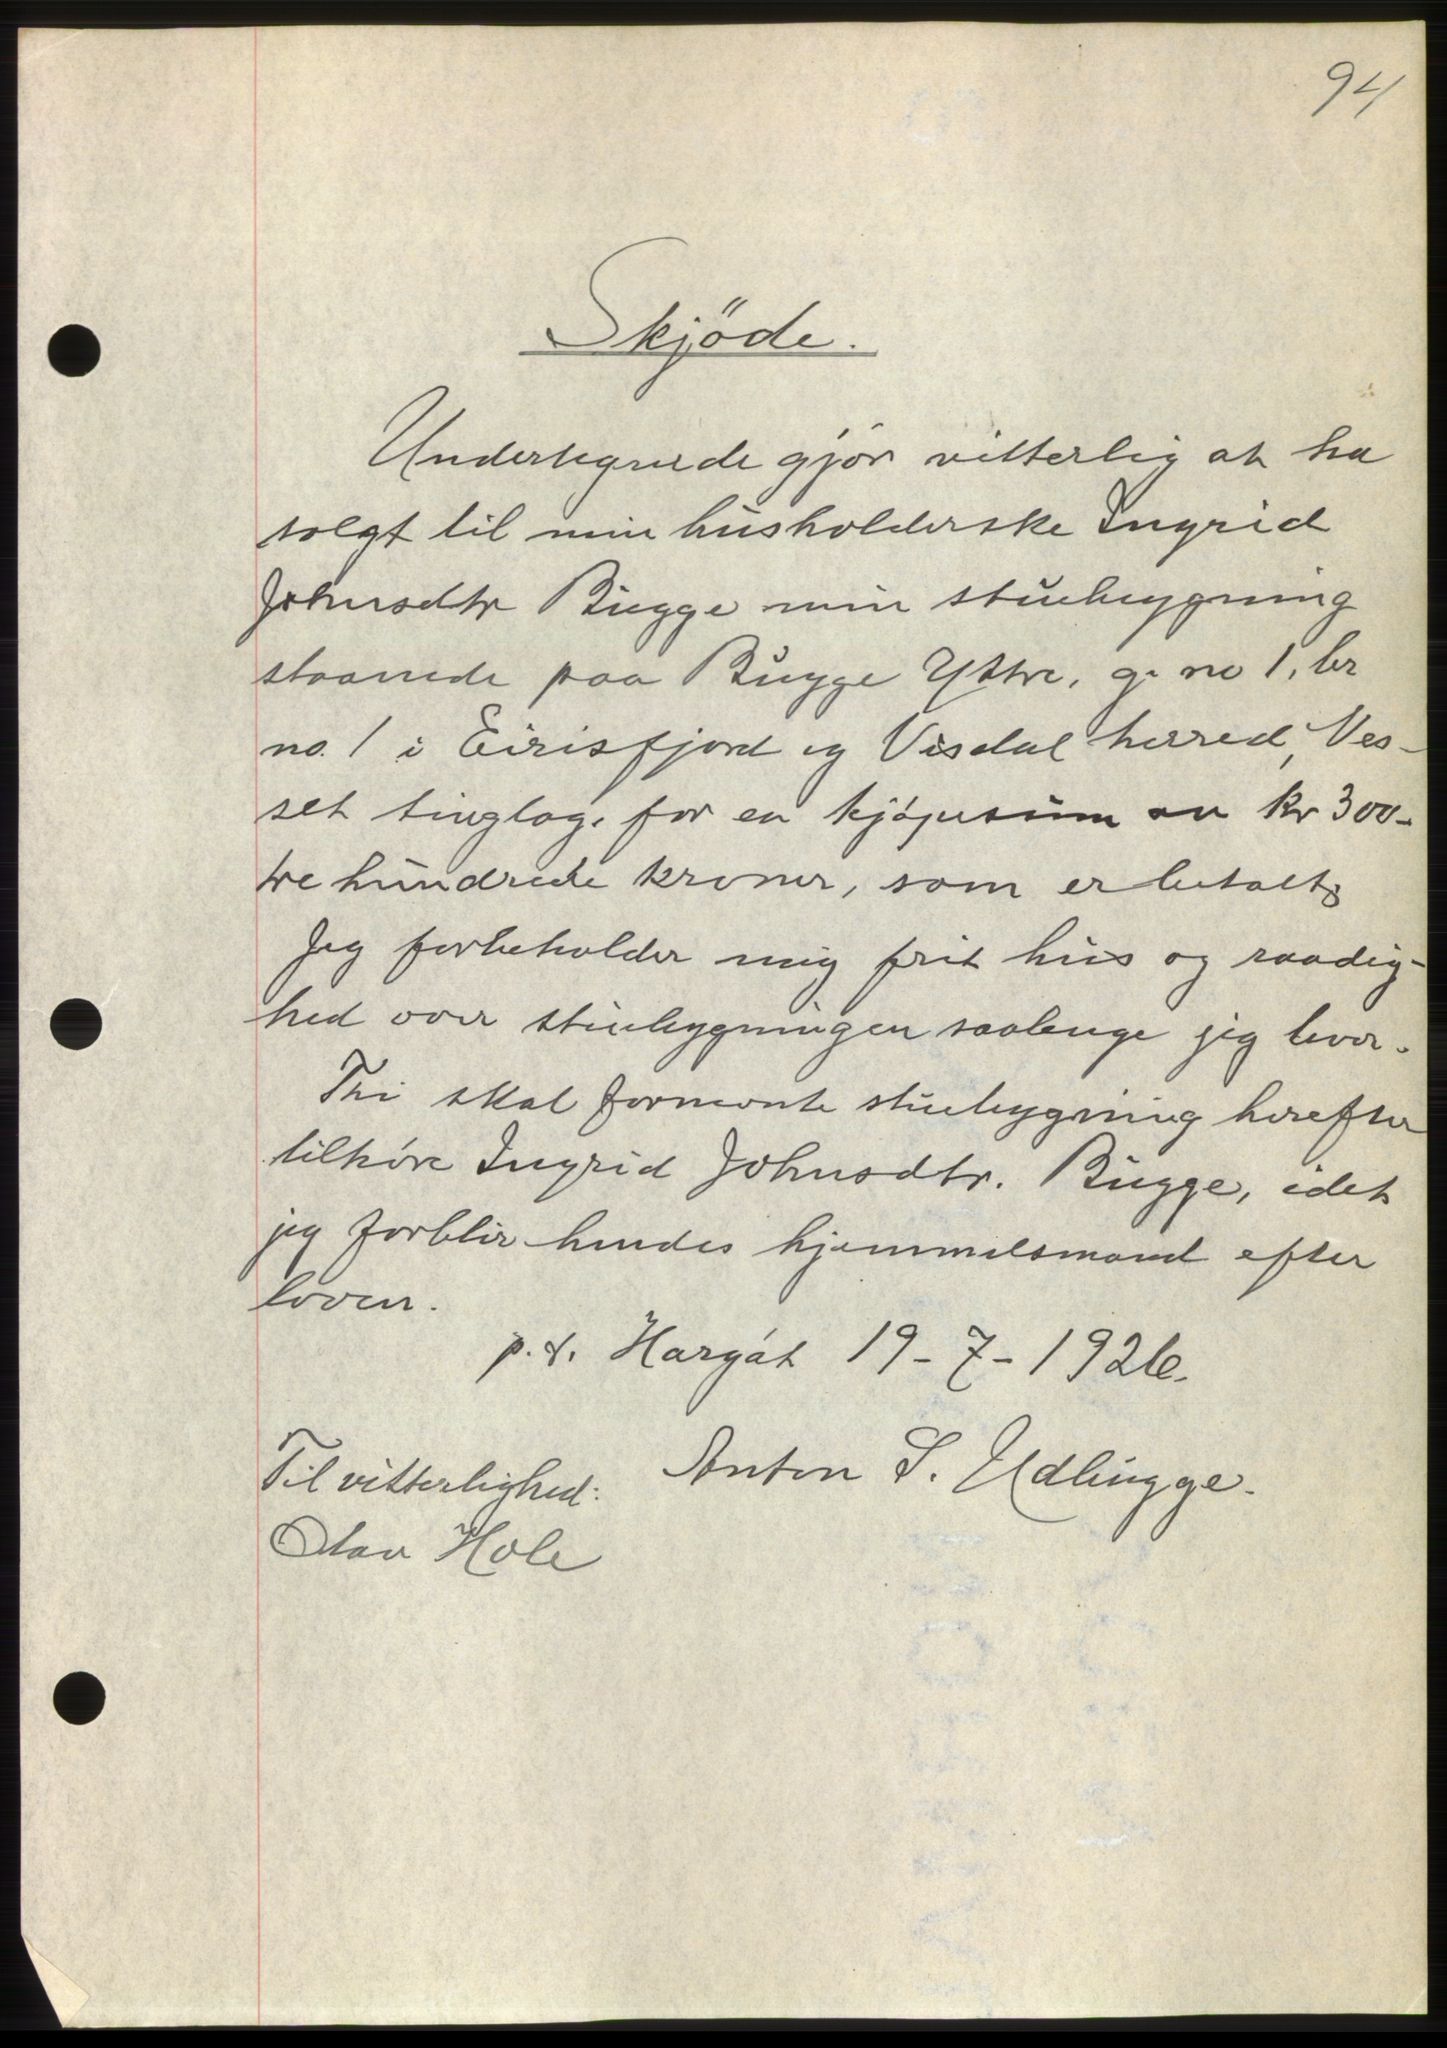 94
Skjöde.
Undertegnede gjör vitterlig at ha
solgt til min husholderske Ingrid
Johnsdtr Bugge min stuebygning
staaende paa Bugge Ytre, g. no 1, br
no. 1 i Eirisfjord og Visdal herred, Nes-
set tinglag, for en kjöpesum av Kr 300-
tre hundrede kroner, som er betalt.
Jeg forbeholder mig frit hus og raadig-
hed over stuebygningen saalenge jeg lever.
Thi skal formente stuebygning herefter
tilhöre Ingrid Johnsdtr. Bugge, idet
jeg forblir hendes hjemmelsmand efter
loven.
p.t. 19-7-1926.
Til vitterlighed: Anton S. Udbugge.
Olav Hole